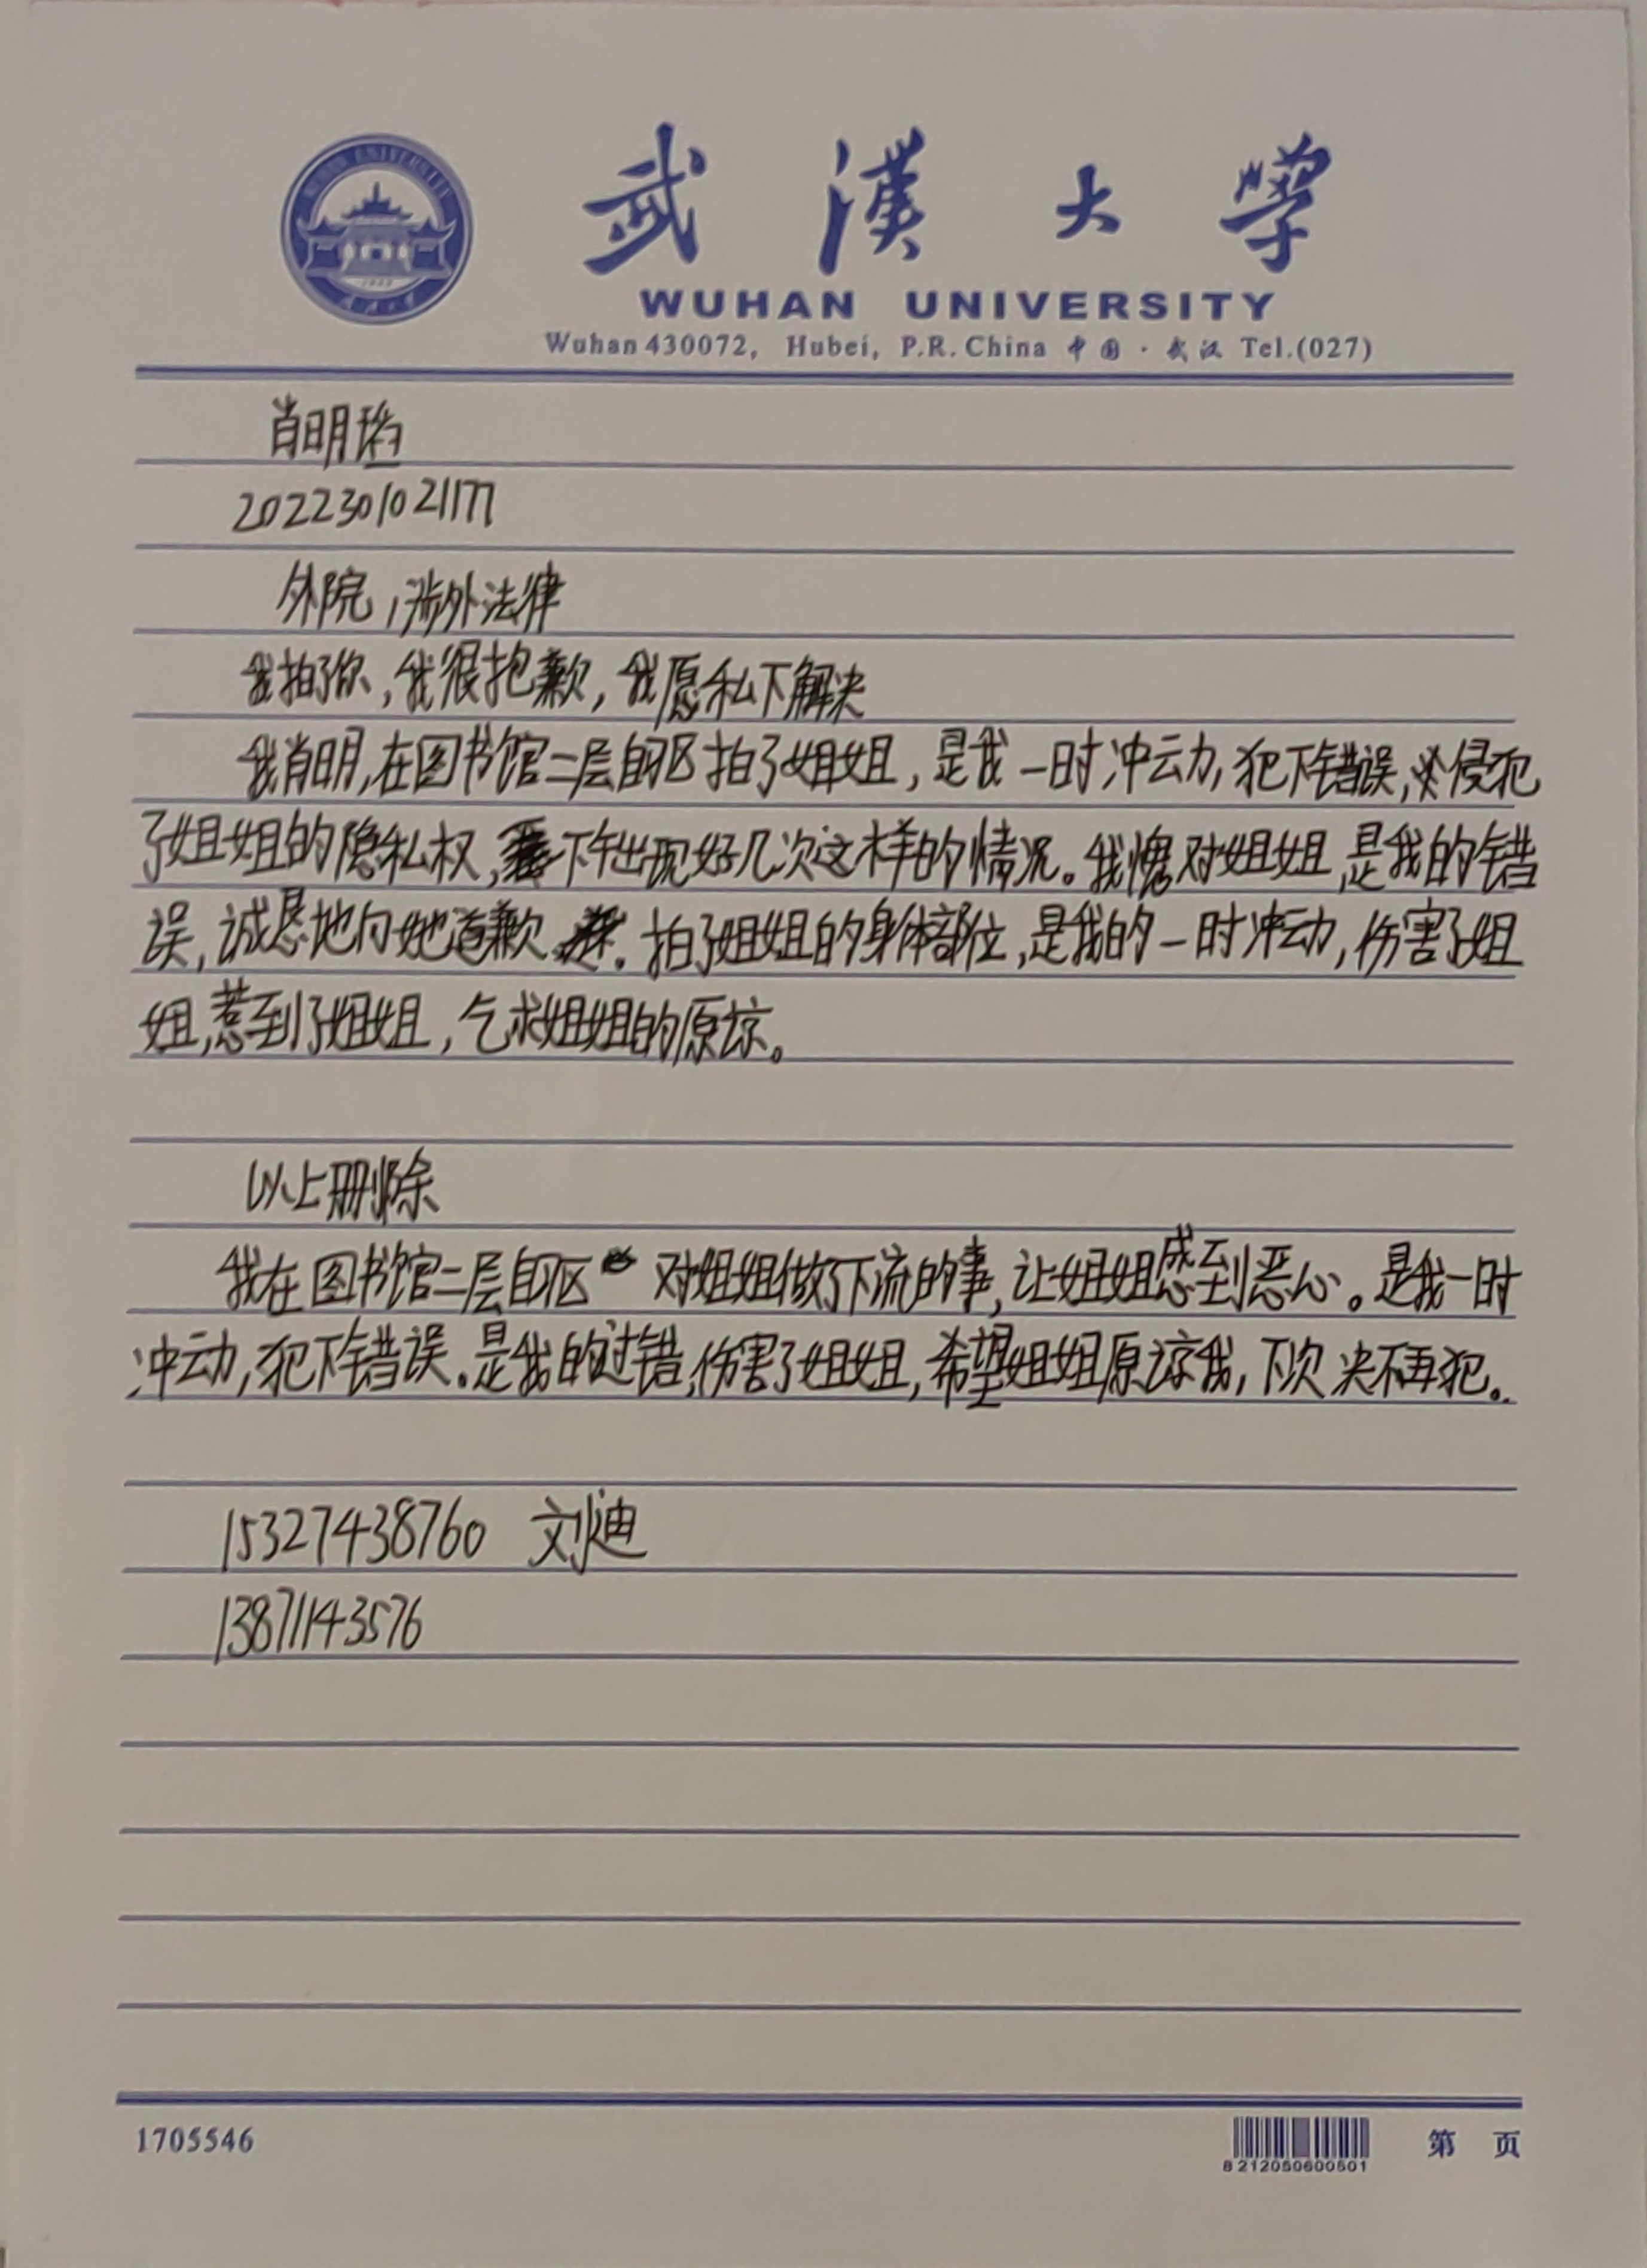 武漢大學
WUHAN UNIVERSITY
Wuhan 430072, Hubei, P.R. China 中国·武汉 Tel.(027)
肖明瑫
2022301021177
外院,涉外法律
我拍了你,我很抱歉,我愿私下解决
我肖明,在图书馆二层自习区拍了姐姐,是我一时冲动,犯下错误,侵犯
了姐姐的隐私权,下午出现好几次这样的情况。我愧对姐姐,是我的错
误,诚恳地向她道歉。拍了姐姐的身体部位,是我的一时冲动,伤害了姐
姐,惹到了姐姐,乞求姐姐的原谅。
以上删除
我在图书馆二层自习区 对姐姐做了下流的事,让姐姐感到恶心。是我一时
冲动,犯下错误。是我的过错,伤害了姐姐,希望姐姐原谅我,下次决不再犯。
15327438760 刘迪
13871143576
1705546
8212050600501
第 页